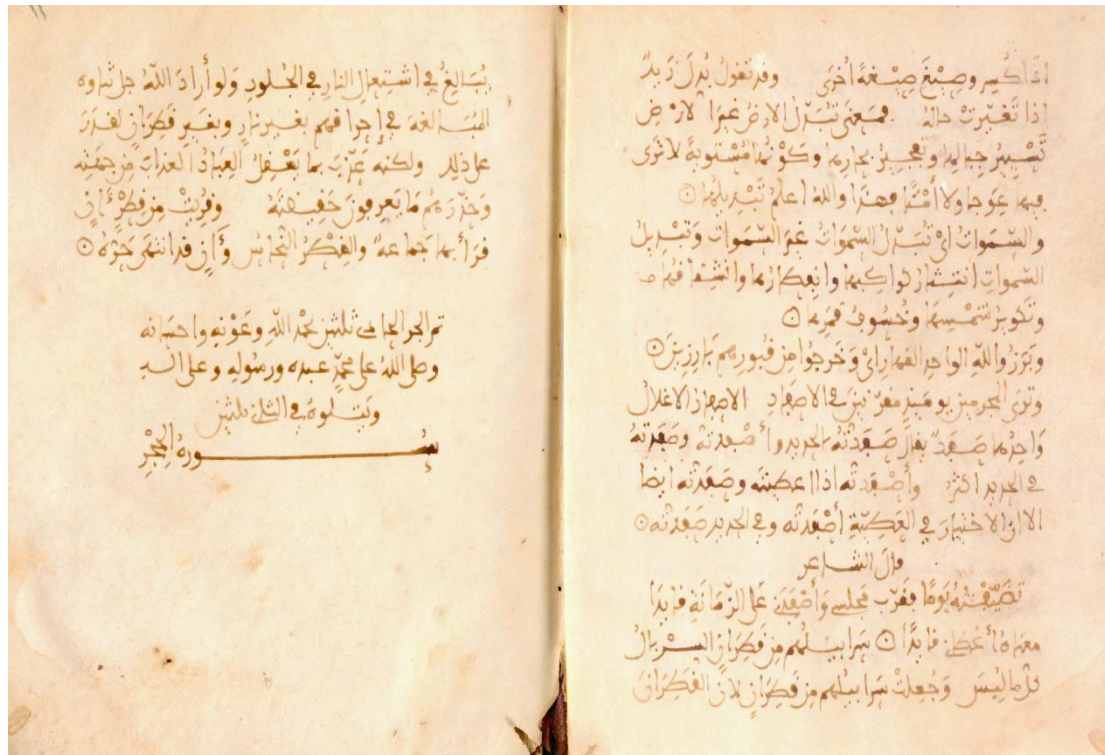 اذا كسر وصيغ صيغة اخرى وقد تقول بدل زيد
اذا تغيرت حاله فمعنى تبدل الارض غير الارض
تسيير جبالها وتفجير بحارها وكونها مستوية لا ترى
فيها عوجا ولا أمتا فهذا والله اعلم تبديلها
والسموات اى تبدل السموات غير السموات وتبديل
السموات انتثار كواكبها وانفطارها وانشقاقها
وتكوير شمسها وخسوف قمرها
وبرزوا لله الواحد القهار اى وخرجوا من قبورهم بارزين
وترى المجرمين يومئذ مقرنين في الاصفاد الاصفاد الاغلال
واحدها صفد يقال صفدته بالحديد وأصفدته وصفدته
في الحديد اكثر وأصفدته اذا اعطيته وصفدته ايضا
الا ان الاختيار في العطية أصفدته وفي الحديد صفدته
قال الشاعر
تضيفته يوما فقرب مجلسي وأصفدني على الزمانة قايدا
معناه أعطاني قايدا سرابيلهم من قطران السربال
كل ما لبس وجعلت سرابيلهم من قطران لان القطران
يبالغ في اشتعال النار في الجلود ولو أراد الله جل ثناوه
المبالغة في إحراقهم بغير نار وبغير قطران لقدر
على ذلك ولكنه عذب بما يعقل العباد العذاب من جهته
وحذرهم ما يعرفون حقيقته وقريت من قطر ءان
قرأ بها جماعة والقطر النحاس وءان قد انتهى حره
تم الجز الحادي ثلثين بحمد الله وعونه واحسانه
وصلى الله على محمد عبده ورسوله وعلى اله
ويتلوه في الثاني ثلثين
سورة الحجر